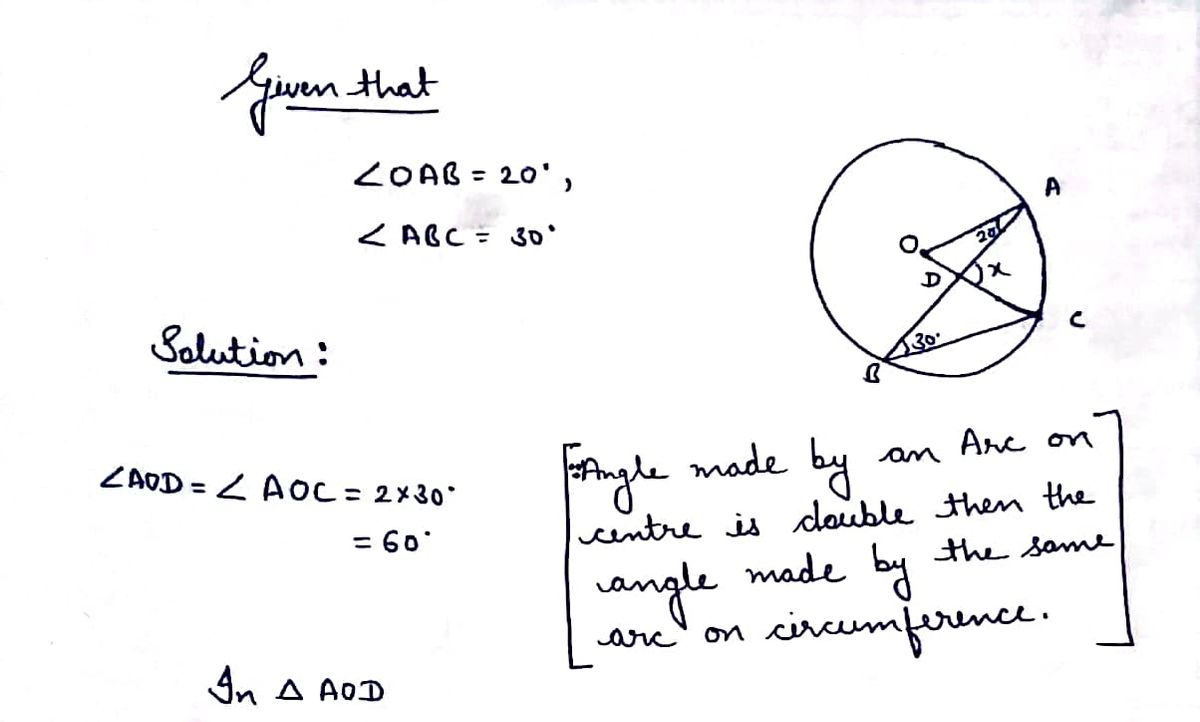 Given that
∠OAB = 20°,
∠ABC = 30°
A
O
20°
D
x
C
30°
B
Solution:
∠AOD = ∠AOC = 2×30°
= 60°
[∵Angle made by an Arc on
centre is double then the
angle made by the same
arc on circumference.]
In △ AOD